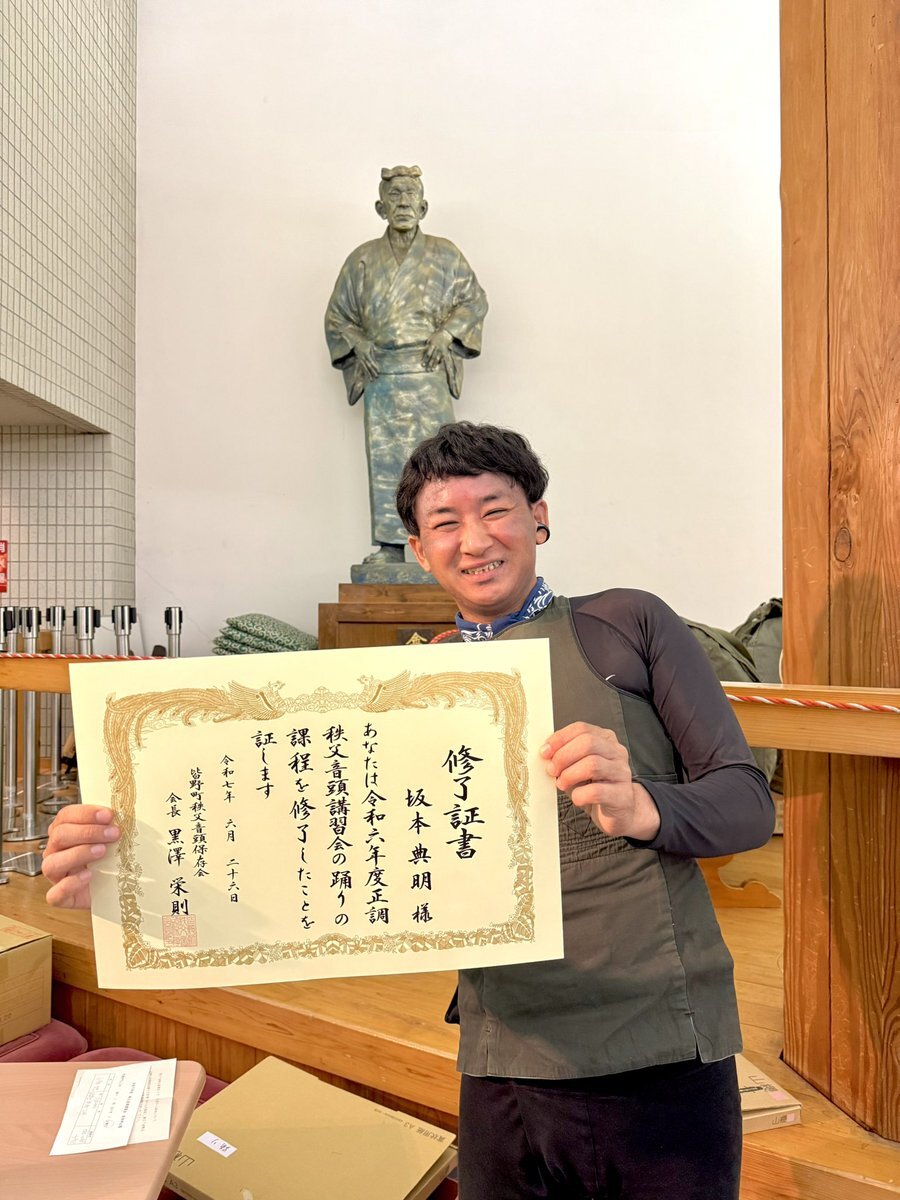 修了証書
坂本典明様
あなたは令和六年度正調
秩父音頭講習会の踊りの
課程を修了したことを
証します
令和七年 六月 二十六日
皆野町秩父音頭保存会
会長 黒澤 栄則
賞状用紙 A3